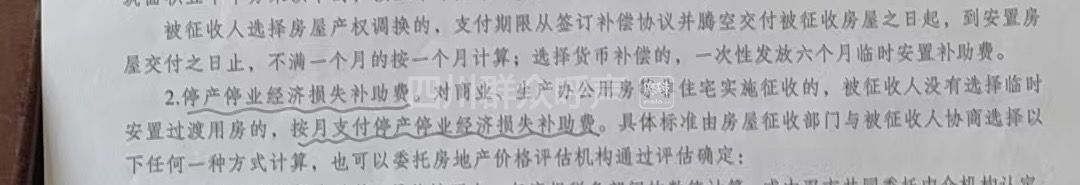 被征收人选择房屋产权调换的，支付期限从签订补偿协议并腾空交付被征收房屋之日起，到安置房
屋交付之日止，不满一个月的按一个月计算；选择货币补偿的，一次性发放六个月临时安置补助费。
2.停产停业经济损失补助费。对商业、生产办公用房等非住宅实施征收的，被征收人没有选择临时
安置过渡用房的，按月支付停产停业经济损失补助费。具体标准由房屋征收部门与被征收人协商选择以
下任何一种方式计算，也可以委托房地产价格评估机构通过评估确定：